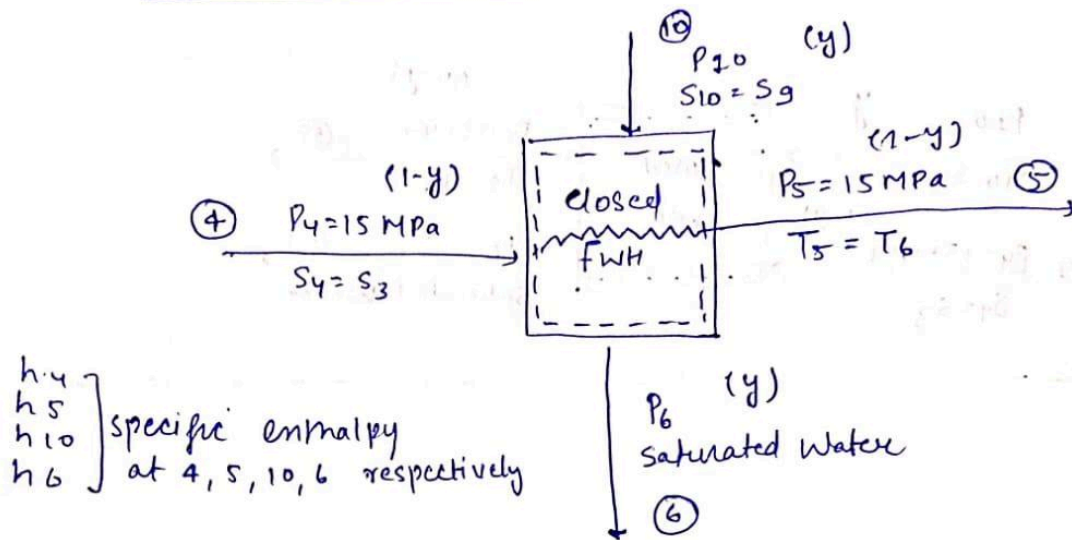 ⑩ (y)
P10
S10 = S9
(1-y)
④ P4 = 15 MPa
S4 = S3
closed
FWH
(1-y)
P5 = 15 MPa ⑤
T5 = T6
h4
h5
h10
h6
specific enthalpy
at 4, 5, 10, 6 respectively
P6 (y)
saturated water
⑥